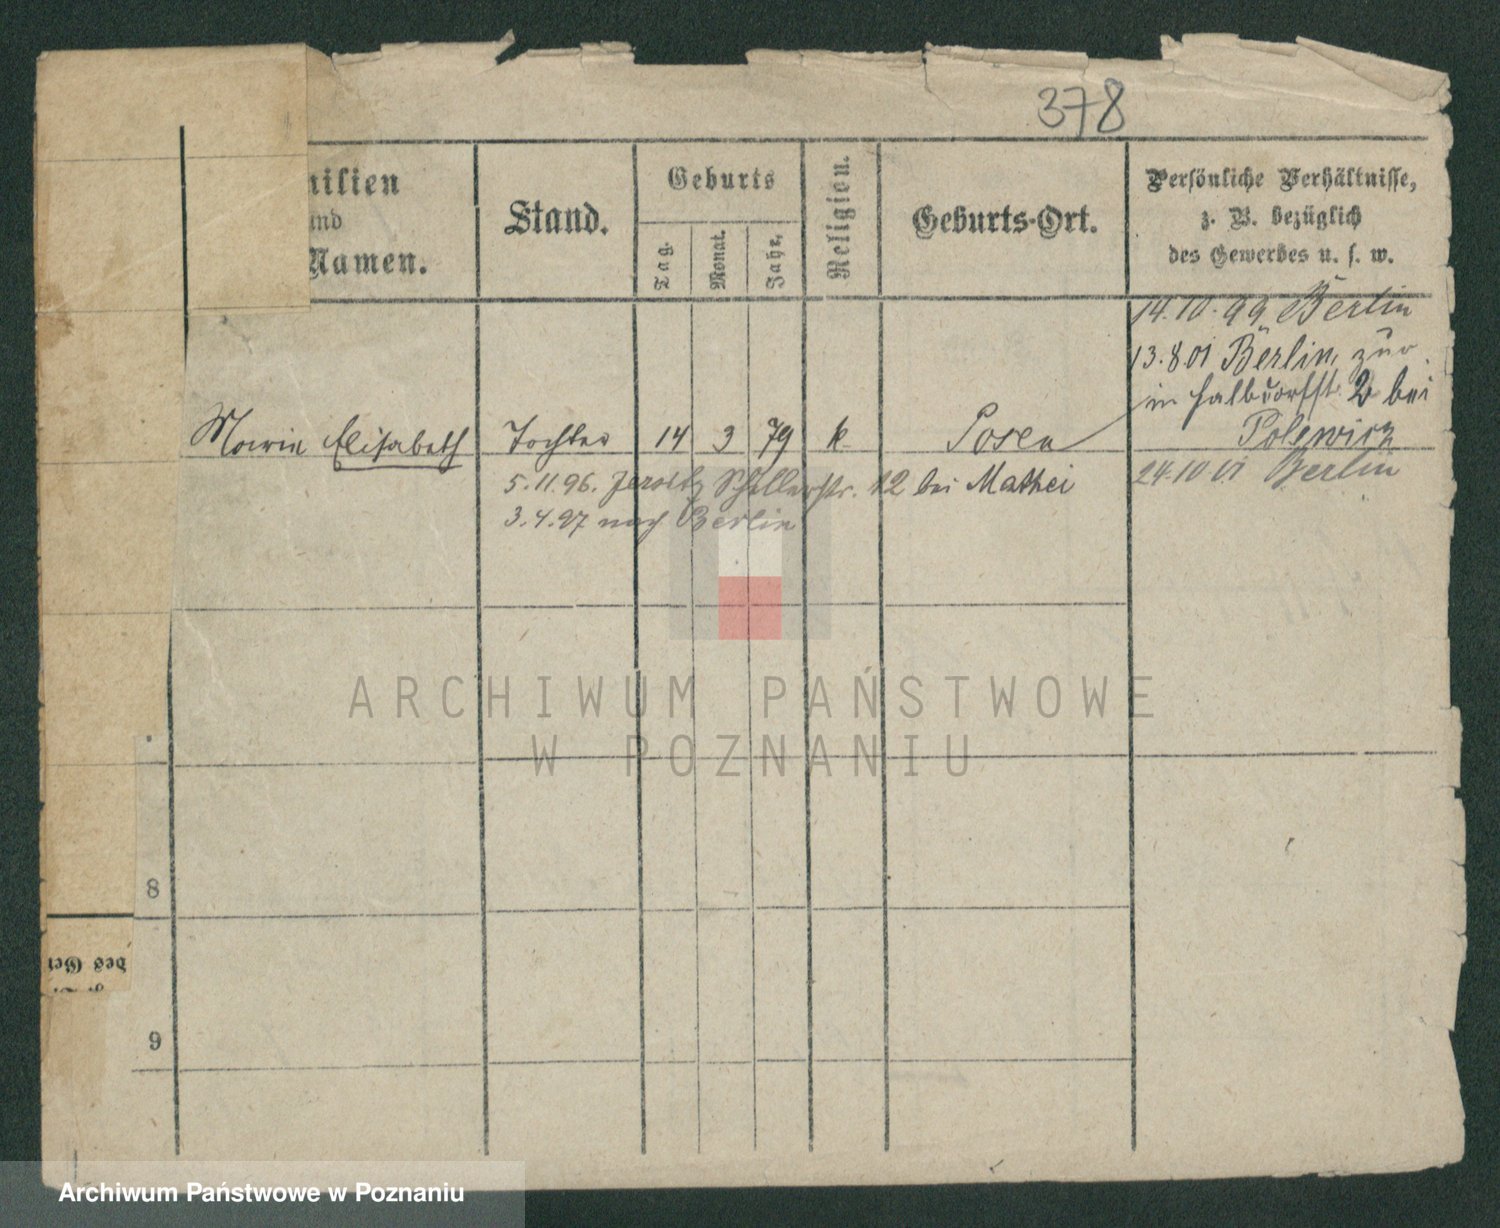 378
milien
und
Namen.
Stand.
Geburts
Tag.
Monat.
Jahr.
Religion.
Geburts-Ort.
Persönliche Verhältnisse,
z. B. bezüglich
des Gewerbes u. s. w.
14.10.99 Berlin
13.8.01 Berlin, zur
in Halbdorfstr. 2 bei
Polewicz
Marie Elisabeth Tochter 14 3 79 k Posen
24.10.01 Berlin
5.11.96. Jersitz Schillerstr. 12 bei Mathei
3.4.97 nach Berlin
ARCHIWUM PAŃSTWOWE
W POZNANIU
8
des Ge
9
Archiwum Państwowe w Poznaniu